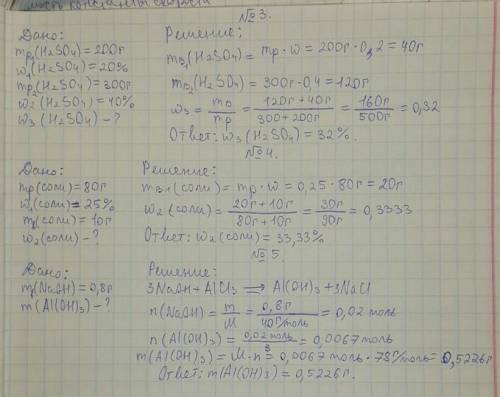 ность константы скорости
№3.
Дано:
mр₁(H2SO4)=200г
w₁(H2SO4)=20%
mр₂(H2SO4)=300г
w₂(H2SO4)=40%
w₃(H2SO4)-?
Решение:
mв₁(H2SO4)=mр·w=200г·0,2=40г
mв₂(H2SO4)=300г·0,4=120г
w₃=mв/mр=120г+40г/300+200г=160г/500г=0,32
Ответ: w₃(H2SO4)=32%.
№4.
Дано:
mр(соли)=80г
w₁(соли)=25%
m(соли)=10г
w₂(соли)-?
Решение:
mв₁(соли)=mр·w=0,25·80г=20г
w₂(соли)=20г+10г/80г+10г=30г/90г=0,3333
Ответ: w₂(соли)=33,33%
№5.
Дано:
m(NaOH)=0,8г
m(Al(OH)3)-?
Решение:
3NaOH+AlCl3⟹Al(OH)3+3NaCl
n(NaOH)=m/M=0,8г/40г/моль=0,02 моль
n(Al(OH)3)=0,02 моль/3=0,0067 моль
m(Al(OH)3)=M·n=0,0067 моль·78г/моль=0,5226г.
Ответ: m(Al(OH)3)=0,5226г.